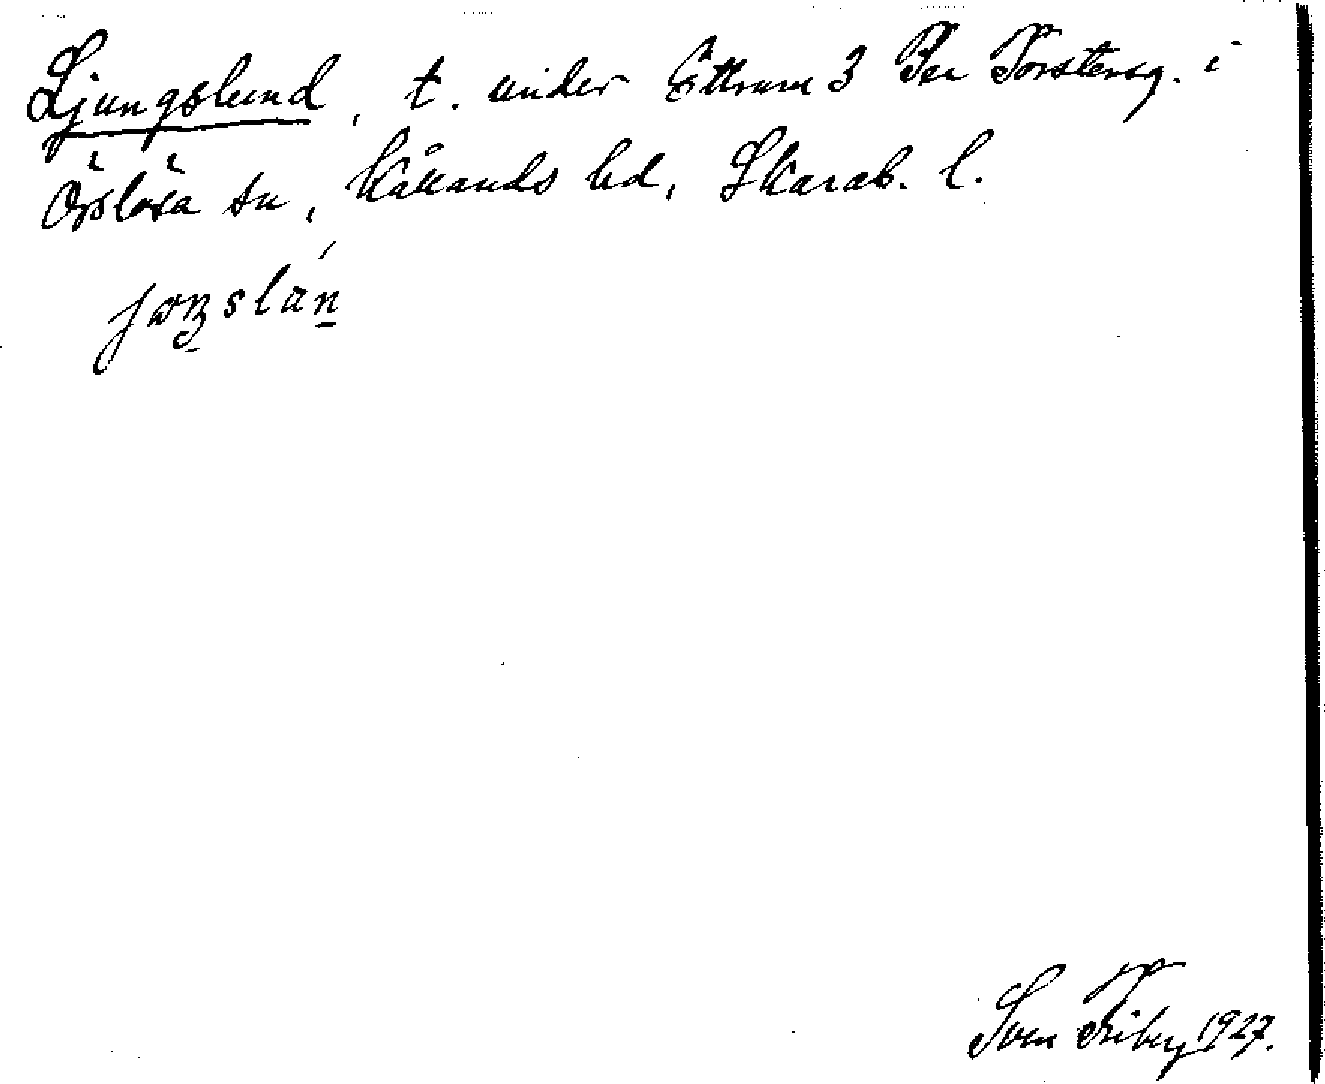 Ljungslund, t. under Ettrum 3 Per Torstensg. i
Örslösa sn, Kållands hd, Skarab. l.
Sven Friberg 1927.